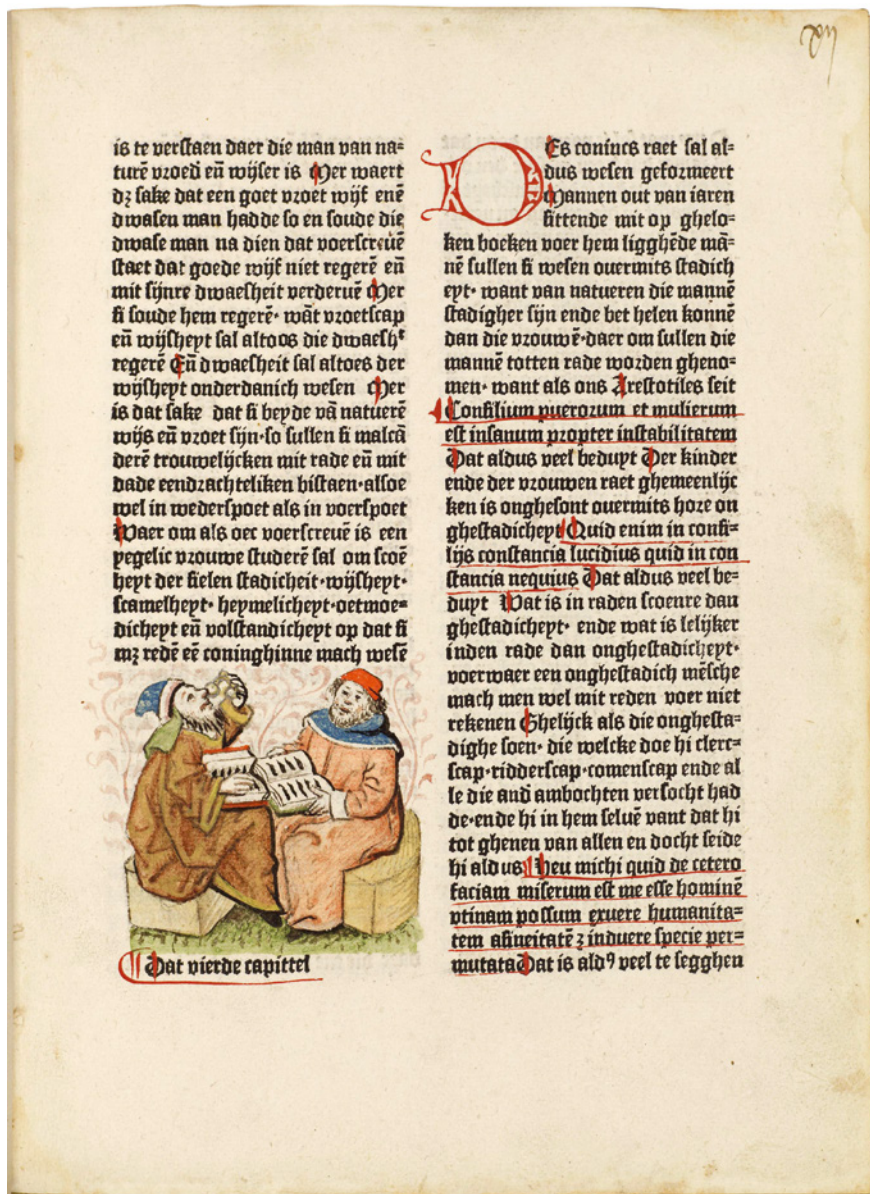 is te verstaen daer die man van na=
turē vroed eñ wijser is Mer waert
dʒ sake dat een goet vroet wijf enē
dwasen man hadde so en soude die
dwase man na dien dat voerscreuē
staet dat goede wijf niet regerē eñ
mit sijnre dwaesheit verderuē Mer
si soude hem regerē· wāt vroetscap
eñ wijsheyt sal altoos die dwaesht
regerē Eñ dwaesheit sal altoes der
wijsheyt onderdanich wesen Mer
is dat sake dat si beyde vā natuerē
wijs eñ vroet sijn·so sullen si malcā
derē trouwelijcken mit rade eñ mit
dade eendrachteliken bistaen·alsoe
wel in wederspoet als in voerspoet
Waer om als oec voerscreuē is een
yegelic vrouwe studerē sal om scoē
heyt der sielen stadicheit·wijsheyt·
scamelheyt· heymelicheyt·oetmoe=
dicheyt eñ volstandicheyt op dat si
mʒ redē eē coninghinne mach wesē
¶ Dat vierde capittel
DEs conincs raet sal al=
dus wesen geformeert
Mannen out van iaren
sittende mit op ghelo=
ken boeken voer hem ligghēde mā=
nē sullen si wesen ouermits stadich
eyt· want van natueren die mannē
stadigher sijn ende bet helen konnē
dan die vrouwē·daer om sullen die
mannē totten rade worden gheno=
men· want als ons Arestotiles seit
¶ Consilium puerorum et mulierum
est insanum propter instabilitatem
Dat aldus veel beduyt Der kinder
ende der vrouwen raet ghemeenlijc
ken is onghesont ouermits hore on
ghestadicheyt Quid enim in consi=
lijs constancia lucidius quid in con
stancia nequius Dat aldus veel be=
duyt Wat is in raden scoenre dan
ghestadicheyt· ende wat is lelijker
inden rade dan onghestadicheyt·
voerwaer een onghestadich mēsche
mach men wel mit reden voer niet
rekenen Ghelijck als die onghesta=
dighe soen· die welcke doe hi clerc=
scap·ridderscap·comenscap ende al
le die and̄ ambochten versocht had
de·ende hi in hem seluē vant dat hi
tot ghenen van allen en docht seide
hi aldus ¶ Heu michi quid de cetero
faciam miserum est me esse hominē
vtinam possum exuere humanita=
tem asineitatē ⁊ induere specie per=
mutata Dat is aldꝰ veel te segghen